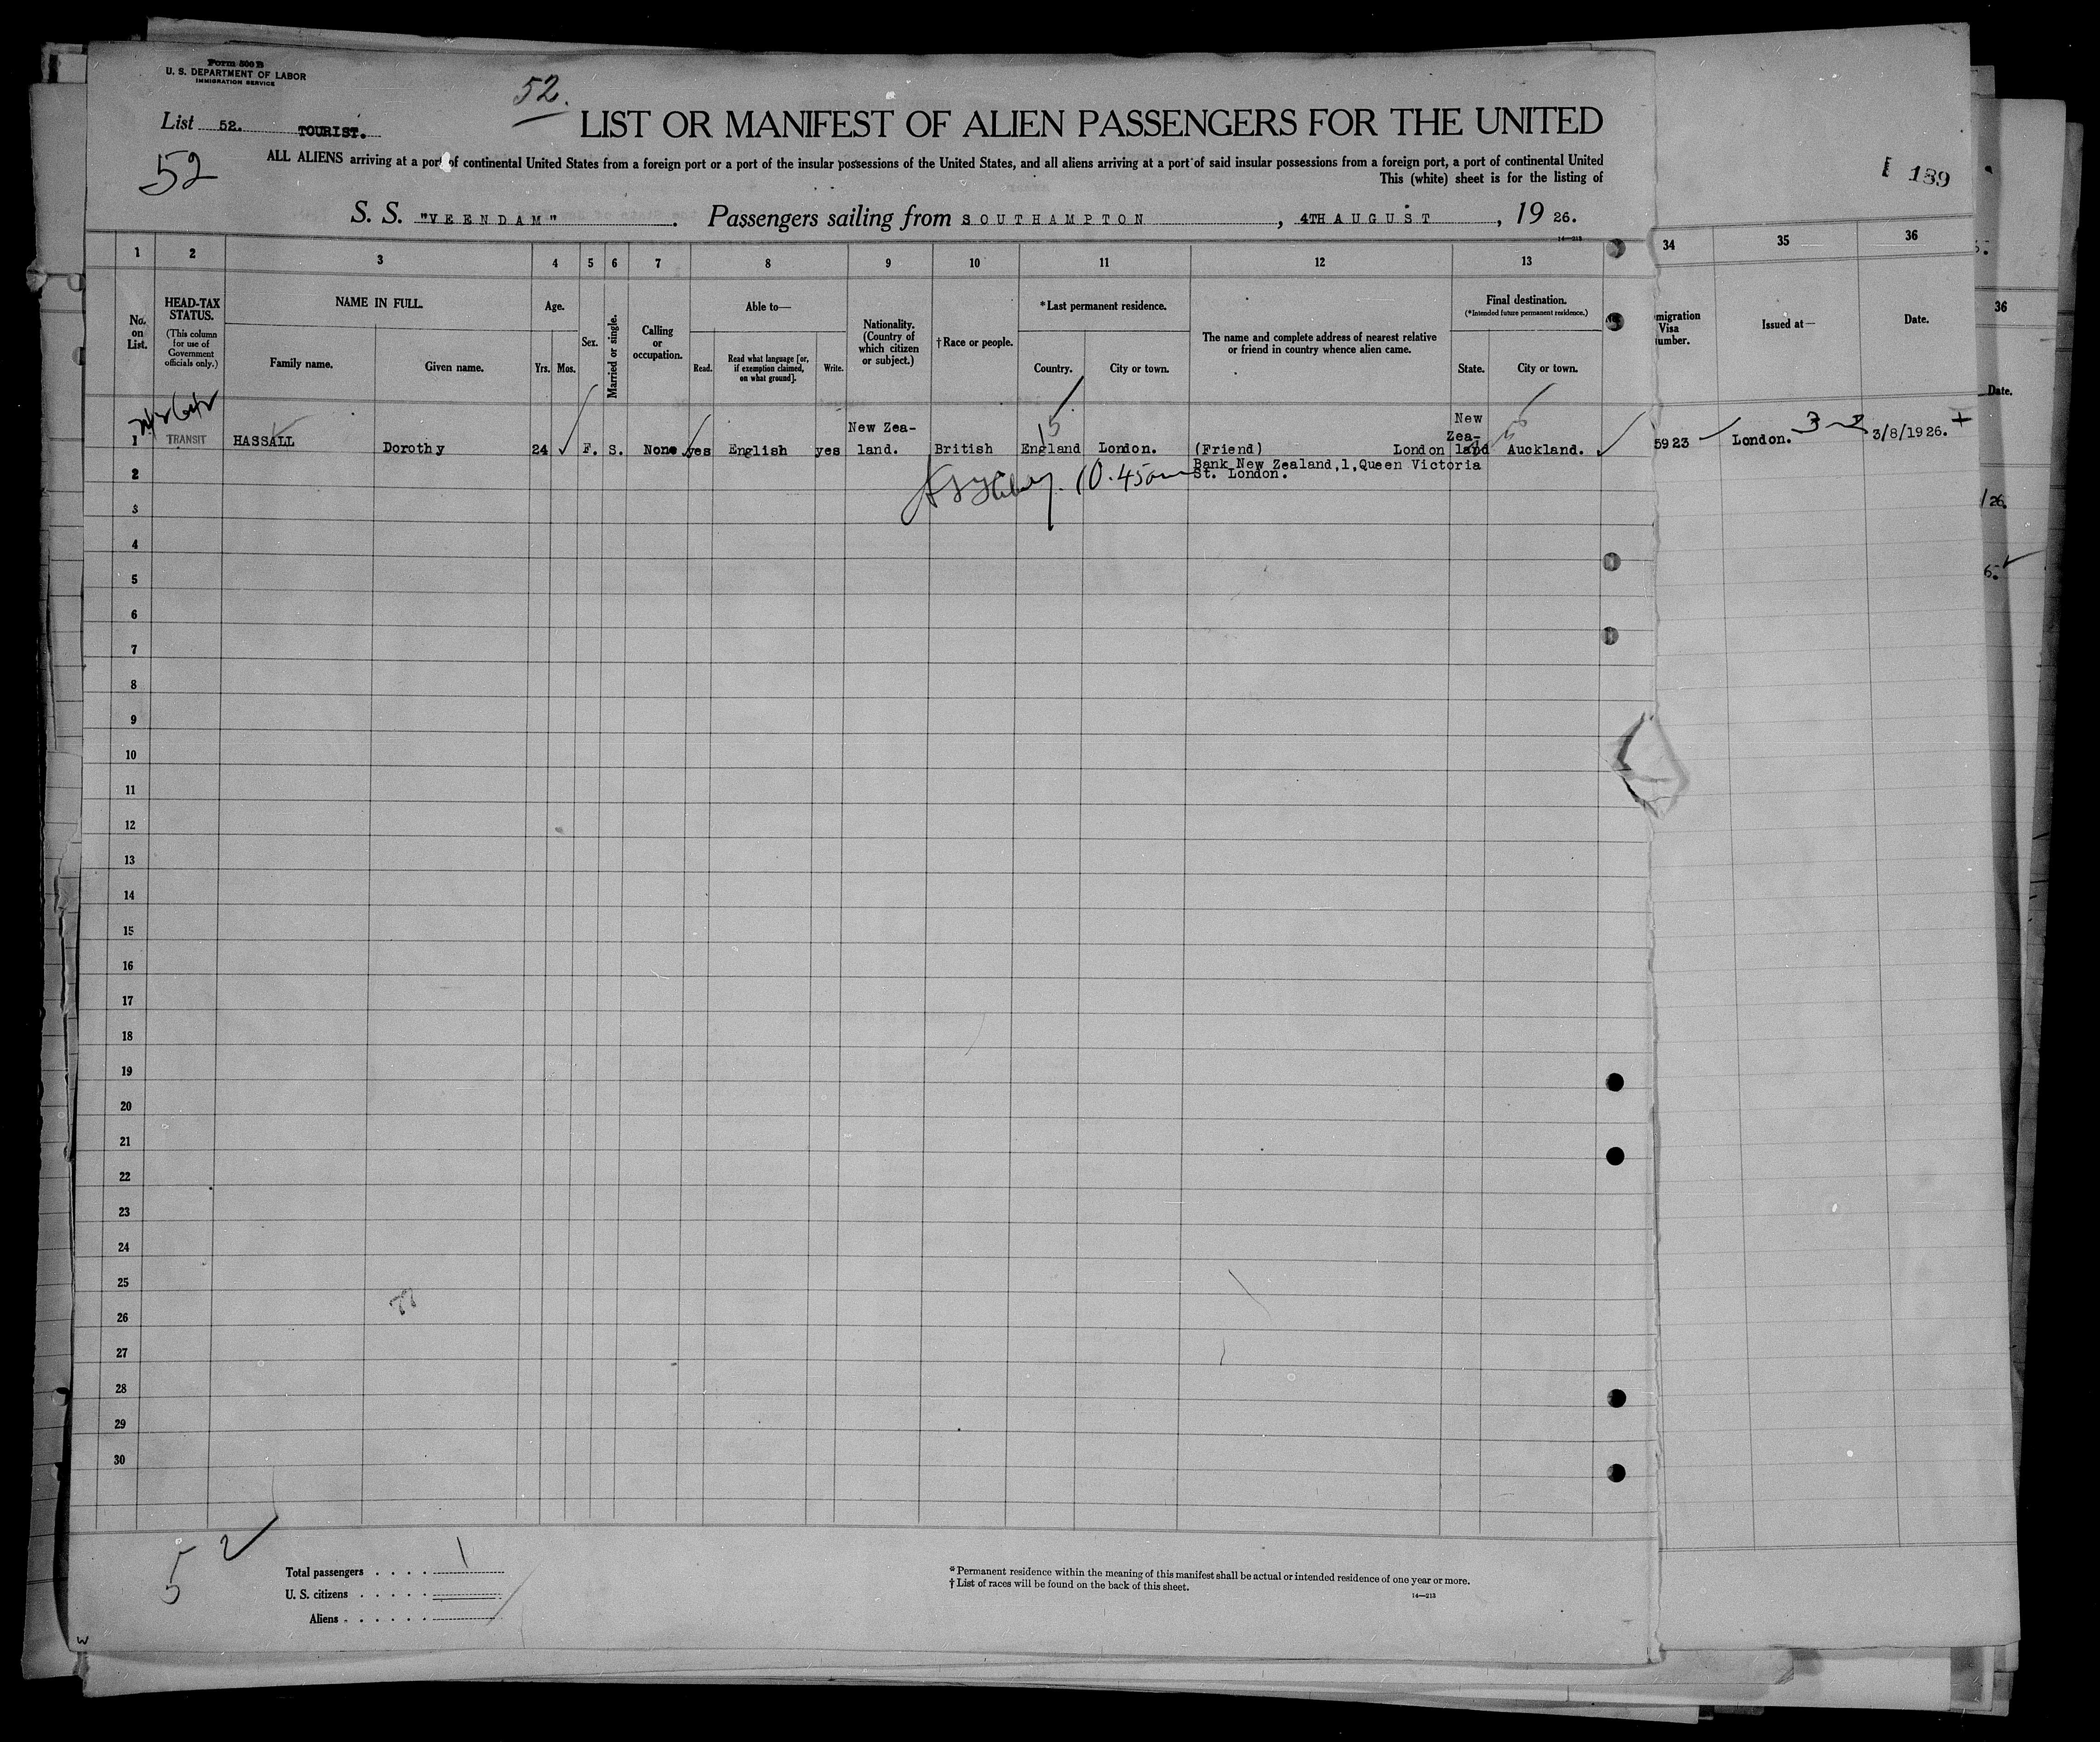 Form 500 B
U. S. DEPARTMENT OF LABOR
IMMIGRATION SERVICE
52.
List 52. TOURIST.
LIST OR MANIFEST OF ALIEN PASSENGERS FOR THE UNITED
52
ALL ALIENS arriving at a port of continental United States from a foreign port or a port of the insular possessions of the United States, and all aliens arriving at a port of said insular possessions from a foreign port, a port of continental United
This (white) sheet is for the listing of
189
S. S. "VEENDAM". Passengers sailing from SOUTHAMPTON, 4TH AUGUST, 1926.
14—213
1 2 3 4 5 6 7 8 9 10 11 12 13 34 35 36
No. on List.
HEAD-TAX STATUS.
(This column for use of Government officials only.)
NAME IN FULL.
Family name. Given name.
Age.
Yrs. Mos.
Sex.
Married or single.
Calling or occupation.
Able to—
Read. Read what language [or, if exemption claimed, on what ground]. Write.
Nationality. (Country of which citizen or subject.)
†Race or people.
*Last permanent residence.
Country. City or town.
The name and complete address of nearest relative or friend in country whence alien came.
Final destination.
(*Intended future permanent residence.)
State. City or town.
migration Visa umber.
Issued at—
Date.
36
Date.
1 TRANSIT HASSALL Dorothy 24 F. S. None yes English yes New Zea-land. British England London. (Friend) London New Zea-land Auckland. 5923 London. 3/8/1926.
Bank New Zealand,1,Queen Victoria
St. London.
15
10.45am
2
3
4
5
6
7
8
9
10
11
12
13
14
15
16
17
18
19
20
21
22
23
24
25
26
27
28
29
30
52
Total passengers . . . . 1
U. S. citizens . . . . .
Aliens . . . . . .
*Permanent residence within the meaning of this manifest shall be actual or intended residence of one year or more.
†List of races will be found on the back of this sheet.
14—213
W